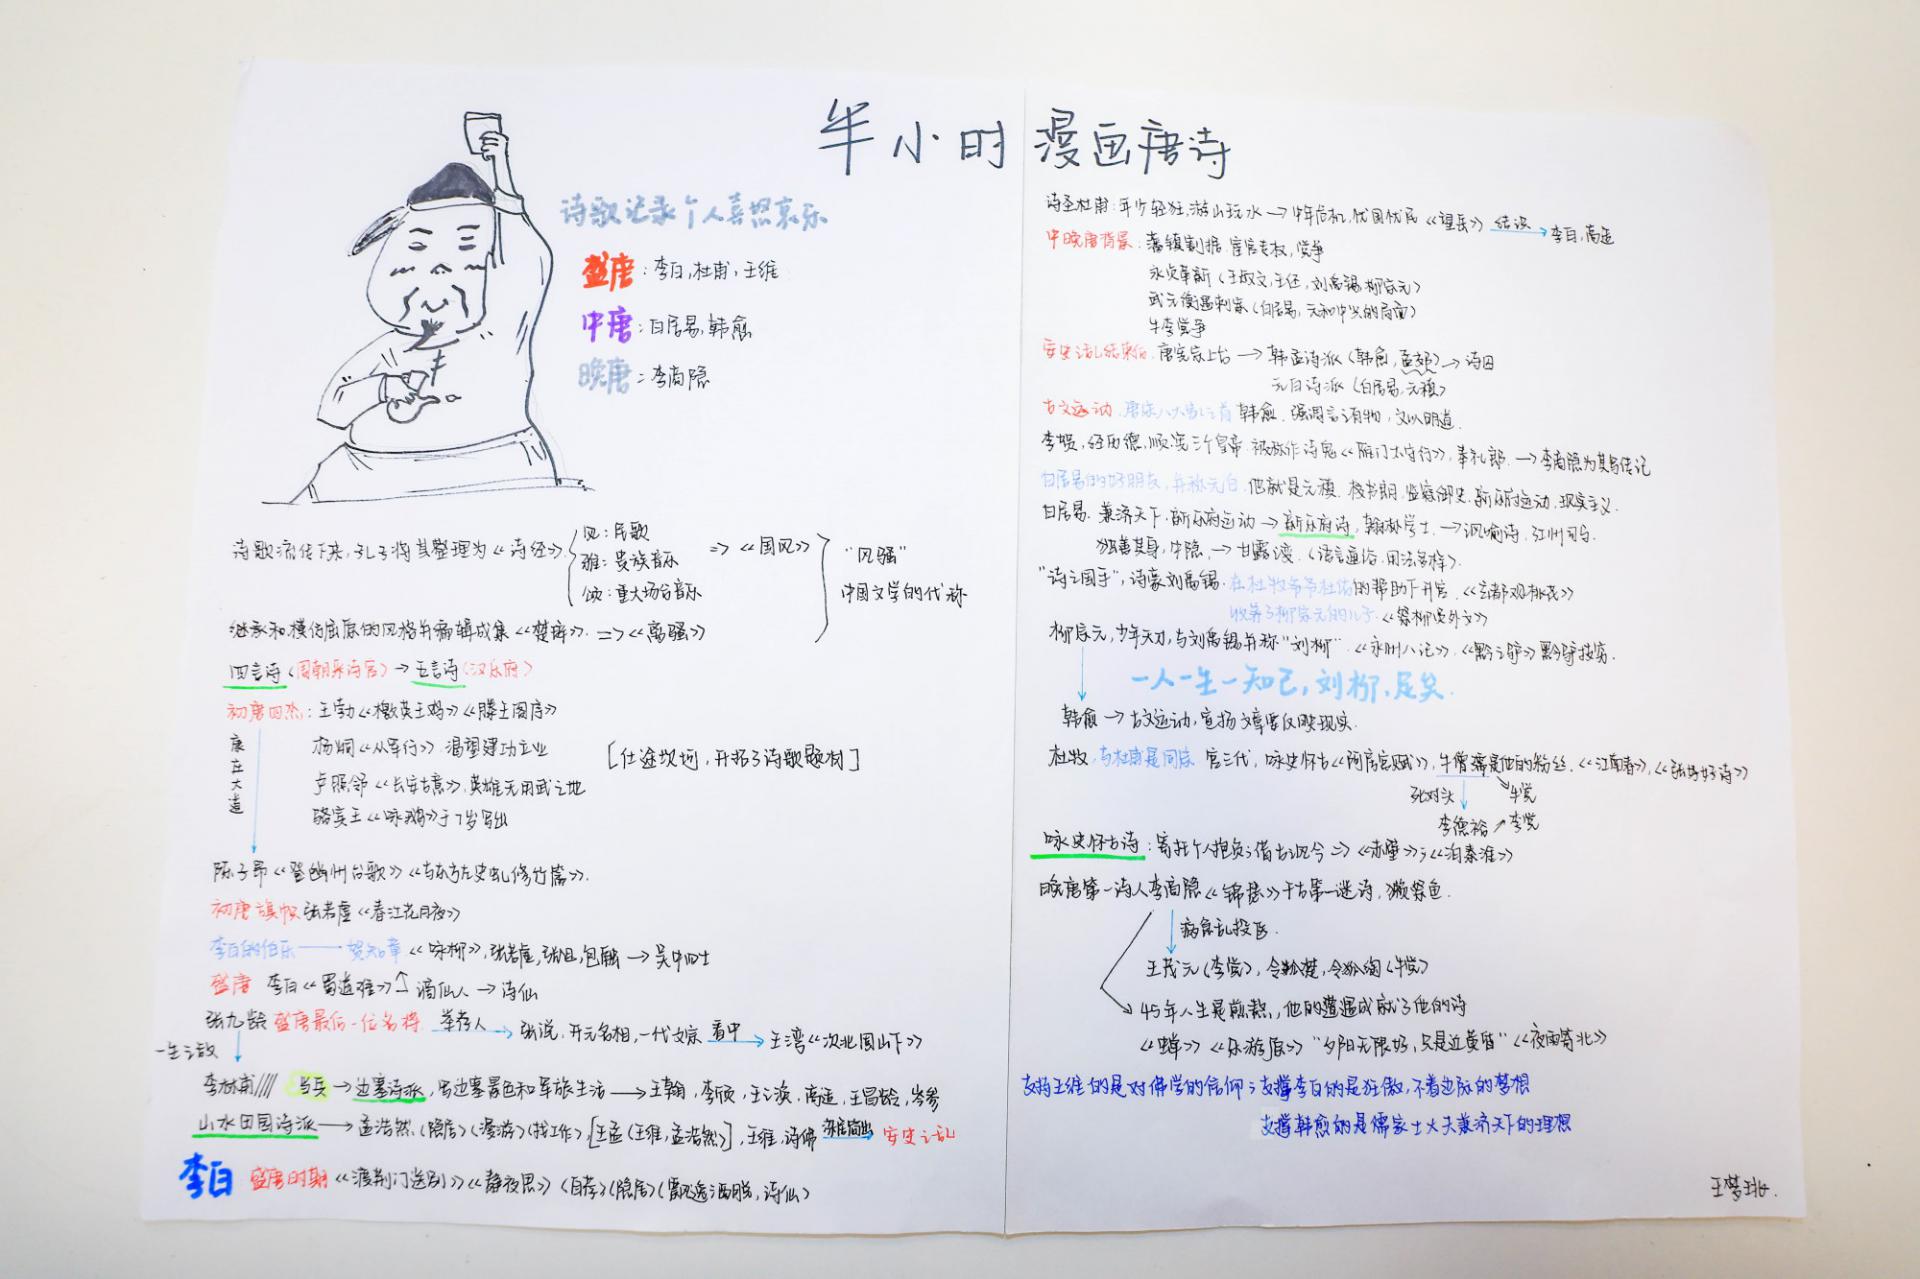 半小时漫画唐诗
诗歌记录个人喜怒哀乐
盛唐：李白，杜甫，王维
中唐：白居易，韩愈
晚唐：李商隐
诗歌流传下来，孔子将其整理为《诗经》
风：民歌
雅：贵族音乐
颂：重大场合音乐
=>《国风》
"风骚"
中国文学的代称
继承和模仿屈原的风格并编辑成集《楚辞》. =>《离骚》
四言诗（周朝采诗官）→五言诗（汉乐府）
初唐四杰：王勃《檄英王鸡》《滕王阁序》
康庄大道
杨炯《从军行》. 渴望建功立业
卢照邻《长安古意》，英雄无用武之地
骆宾王《咏鹅》于7岁写出
[仕途坎坷，开拓了诗歌题材]
陈子昂《登幽州台歌》《与东方左史虬修竹篇》.
初唐旗帜 张若虚《春江花月夜》
李白的伯乐——贺知章《咏柳》，张若虚，张旭，包融→吴中四士
盛唐 李白《蜀道难》↑谪仙人→诗仙
张九龄 盛唐最后一位名相. 举荐人→张说，开元名相，一代文宗 看中→王湾《次北固山下》
一生之敌
李林甫//// 当兵→边塞诗派，写边塞景色和军旅生活→王翰，李颀，王之涣，高适，王昌龄，岑参
山水田园诗派→孟浩然（隐居）（漫游）（找工作），[王孟（王维，孟浩然）]，王维，诗佛 →安史之乱
李白 盛唐时期《渡荆门送别》《静夜思》（自荐）（隐居）（飘逸洒脱，诗仙）
诗圣杜甫：年少轻狂，游山玩水→中年危机，忧国忧民《望岳》结识→李白，高适
中晚唐背景：藩镇割据. 宦官专权，党争
永贞革新（王叔文，王伾，刘禹锡.柳宗元）
武元衡遇刺案（白居易，元和中兴的局面）
牛李党争
安史之乱结束后. 唐宪宗上台→韩孟诗派（韩愈，孟郊）→诗囚
元白诗派（白居易，元稹）
古文运动，唐宋八大家之首 韩愈. 强调言之有物，文以明道.
李贺，经历德，顺，宪三个皇帝 被称作诗鬼《雁门太守行》，奉礼郎. →李商隐为其写传记
白居易的好朋友，并称元白. 他就是元稹. 校书郎，监察御史. 新乐府运动，现实主义.
白居易. 兼济天下. 新乐府运动→新乐府诗，翰林学士. →讽喻诗，江州司马.
独善其身，中隐. →甘露之变.（语言通俗，用法多样）.
"诗之国手"，诗豪刘禹锡. 在杜牧爷爷杜佑的帮助下升官.《玄都观桃花》
收养了柳宗元的儿子.《祭柳员外文》
柳宗元，少年天才，与刘禹锡并称"刘柳".《永州八记》，《黔之驴》黔驴技穷.
一人一生一知己，刘柳，足矣.
韩愈→古文运动，宣扬文章要反映现实.
杜牧，与杜甫是同族 官三代，咏史怀古《阿房宫赋》，牛僧孺是他的粉丝.《江南春》，《张好好诗》
死对头 牛党
李德裕 李党
咏史怀古诗：寄托个人抱负；借古讽今=>《赤壁》；《泊秦淮》
晚唐第一诗人李商隐《锦瑟》千古第一谜诗，獭祭鱼.
病急乱投医.
王茂元（李党），令狐楚，令狐绹（牛党）
45年人生是煎熬，他的遭遇成就了他的诗
《蝉》《乐游原》"夕阳无限好，只是近黄昏"《夜雨寄北》
支持王维的是对佛学的信仰；支撑李白的是狂傲，不着边际的梦想
支撑韩愈的是儒家士大夫兼济天下的理想